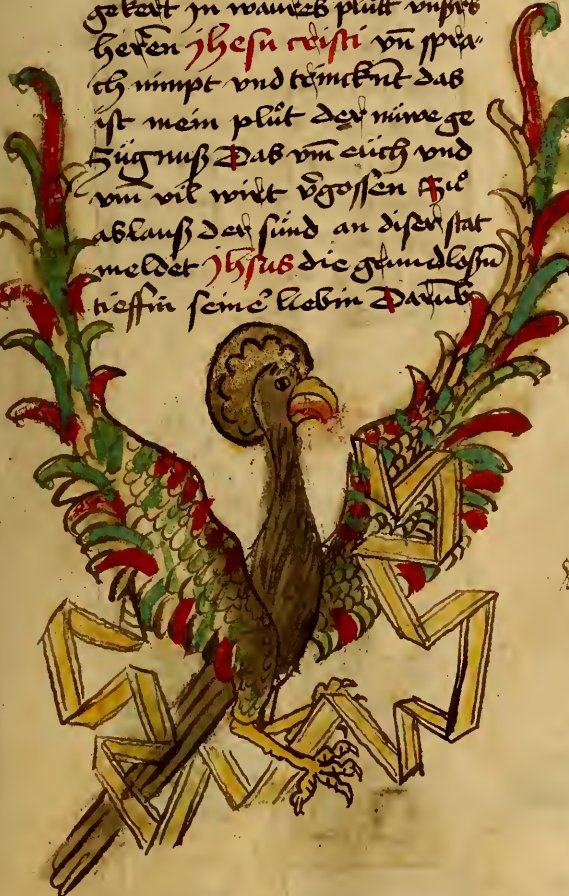 gekert in waures plůtt vnsers
herren jhesu cristi vn̄ spra-
ch nimpt vnd trincknt das
ist mein plůt der núwe ge
zúgnuß Das vm eúch vnd
vm vil wirt v̄gossen Zuͦ
ablauß der súnd an diser stat
meldet Jhsus die grundloßn̄
tieffin seinē liebin Darūb